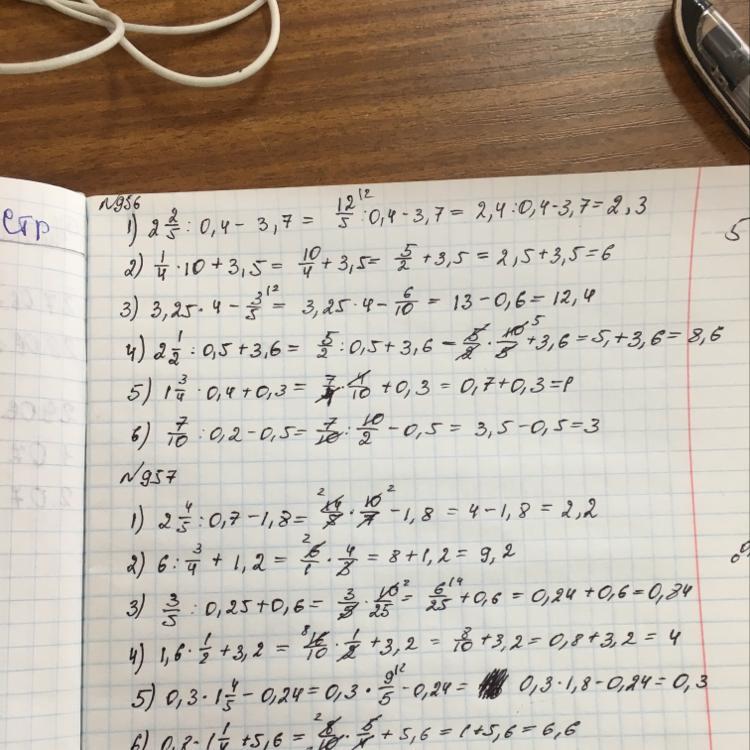 Стр
5
№956
1) 2 2/5 : 0,4 - 3,7 = 12/5 ^12 : 0,4 - 3,7 = 2,4 : 0,4 - 3,7 = 2,3
2) 1/4 · 10 + 3,5 = 10/4 + 3,5 = 5/2 + 3,5 = 2,5 + 3,5 = 6
3) 3,25 · 4 - 3/5 ^12 = 3,25 · 4 - 6/10 = 13 - 0,6 = 12,4
4) 2 1/2 : 0,5 + 3,6 = 5/2 : 0,5 + 3,6 - 5/2 · 10/5 ^5 + 3,6 = 5, + 3,6 = 8,6
5) 1 3/4 · 0,4 + 0,3 = 7/4 · 4/10 + 0,3 = 0,7 + 0,3 = 1
6) 7/10 : 0,2 - 0,5 = 7/10 : 10/2 - 0,5 = 3,5 - 0,5 = 3
№957
1) 2 4/5 : 0,7 - 1,8 = ^2 14/5 · 10/7 ^2 - 1,8 = 4 - 1,8 = 2,2
2) 6 : 3/4 + 1,2 = ^2 6/1 · 4/3 = 8 + 1,2 = 9,2
3) 3/5 : 0,25 + 0,6 = 3/5 · 10/25 ^2 = 6/25 ^14 + 0,6 = 0,24 + 0,6 = 0,84
4) 1,6 · 1/2 + 3,2 = ^8 16/10 · 1/2 + 3,2 = 8/10 + 3,2 = 0,8 + 3,2 = 4
5) 0,3 · 1 4/5 - 0,24 = 0,3 · 9/5 ^12 - 0,24 = 0,3 · 1,8 - 0,24 = 0,3